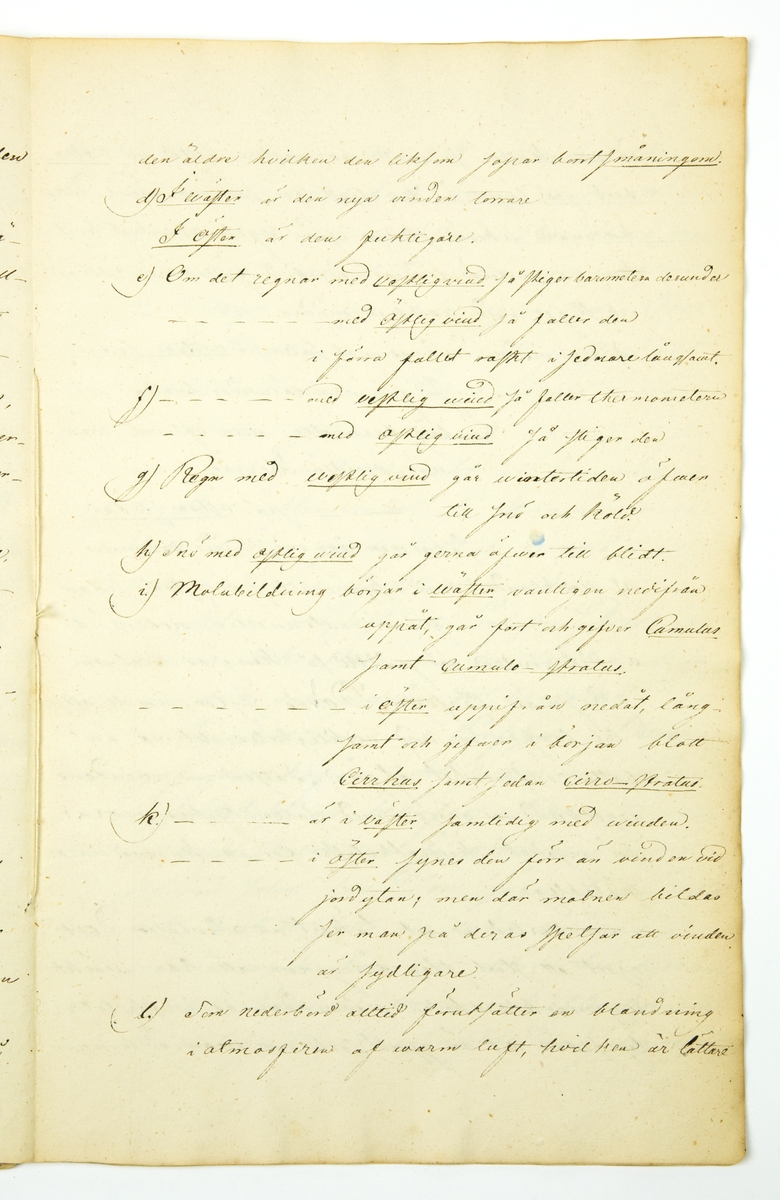 den äldre hvilken den liksom sopar bort småningom.
d) I wäster är den nya vinden torrare
I öster är den fuktigare.
e) Om det regnar med vestlig vind så stiger barometern derunder
— — — — — med östlig vind så faller den
i förra fallet raskt i sednare långsamt.
f) — — — — — med vestlig wind så faller thermometern
— — — — — med ostlig vind så stiger den
g) Regn med westlig vind går wintertiden öfwer
till snö och köld.
h) Snö med ostlig wind går gerna öfwer till blidt.
i.) Molnbildning börjar i wäster vanligen nedifrån
uppåt, går fort och gifver Cumulus
samt cumulo-stratus.
— — — — — — — i öster uppifrån nedåt, lång-
samt och gifwer i början blott
Cirrhus samt sedan cirro-stratus.
k.) — — — — är i väster samtidig med winden.
— — — — i öster synes den förr än vinden vid
jordytan; men där molnen bildas
ser man på deras spetsar att vinden
är sydligare
l.) Som nederbörd alltid förutsätter en blandning
i atmosferen af warm luft, hvilken är lättare